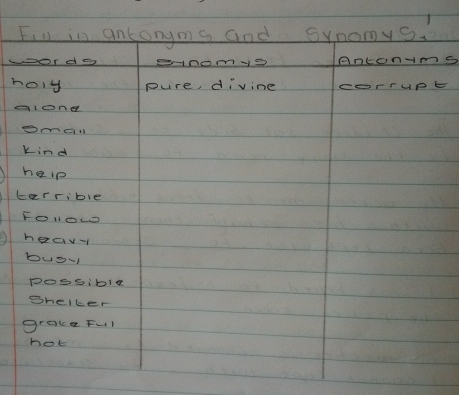 Fill in antonyms and Synomys.
words synomys Antonyms
holy pure, divine corrupt
alone
small
kind
help
terrible
Follow
heavy
busy
possible
Shelter
grateful
hot